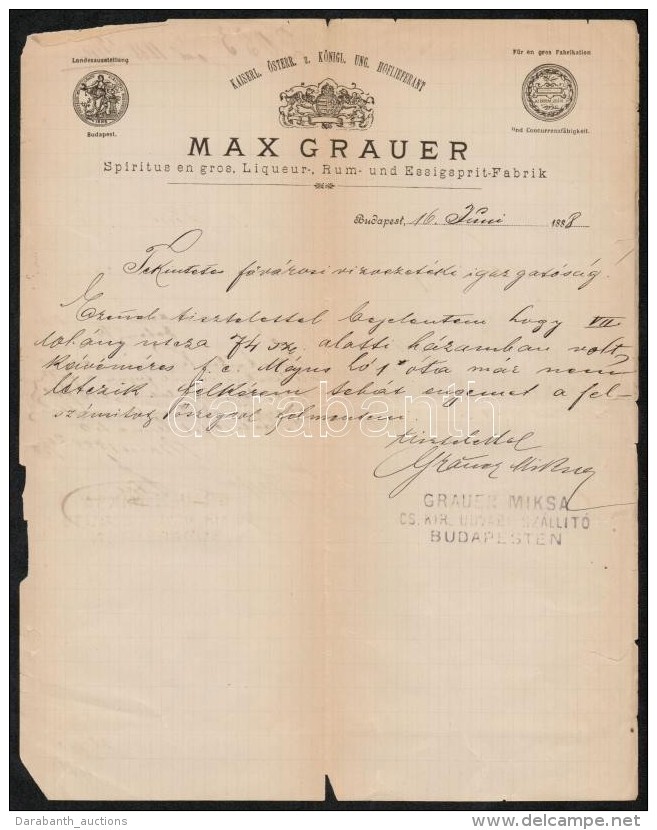 Landesausstellung
Budapest.
KAISERL. ÖSTERR. u. KÖNIGL. UNG. HOFLIEFERANT
Für en gros Fabrikation
Und Concurrenzfähigkeit.
MAX GRAUER
Spiritus en gros, Liqueur-, Rum- und Essigsprit-Fabrik
Budapest, 16. Juni 1888
Tekintetes fővárosi vizvezetéki igazgatóság!
Ezennel tisztelettel bejelentem hogy VII
dohány utcza 74 sz. alatti házamban volt
kávémérés f. é. Május hó 1 óta már nem
létezik. felkérem tehát engemet a fel-
számitott összegtől felmenteni.
tisztelettel
Grauer Miksa
GRAUER MIKSA
CS. KIR. UDVARI SZÁLLITÓ
BUDAPESTEN
darabanth
Darabanth_auctions
delcampe.net